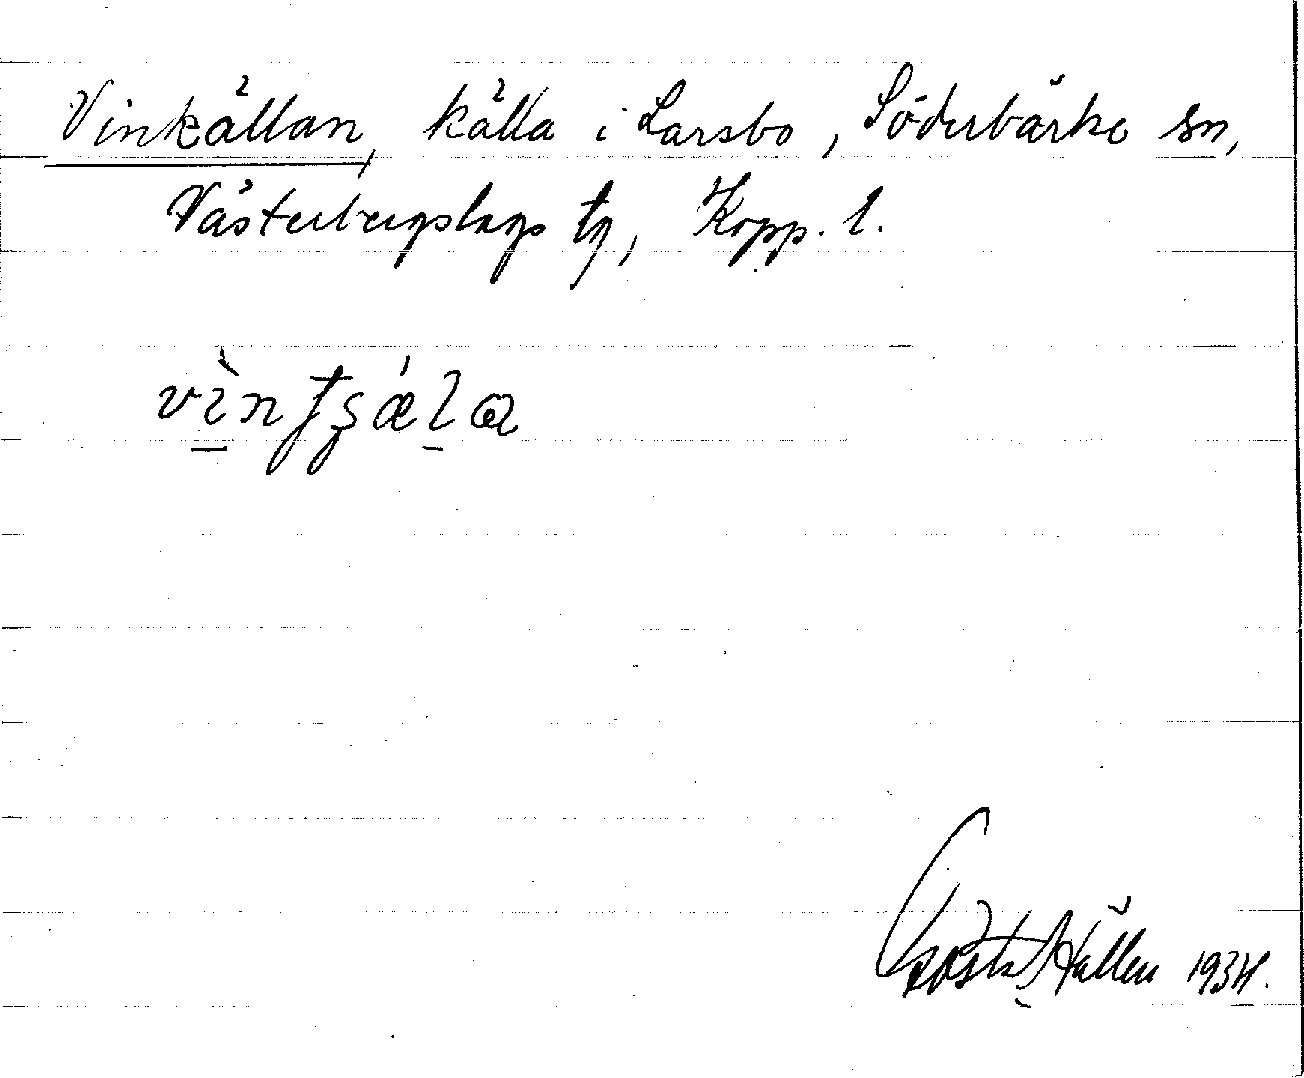 Vinkällan, källa i Larsbo, Söderbärke sn,
Västerbergslags tg, Kopp. l.
Gösta Hällen 1934.